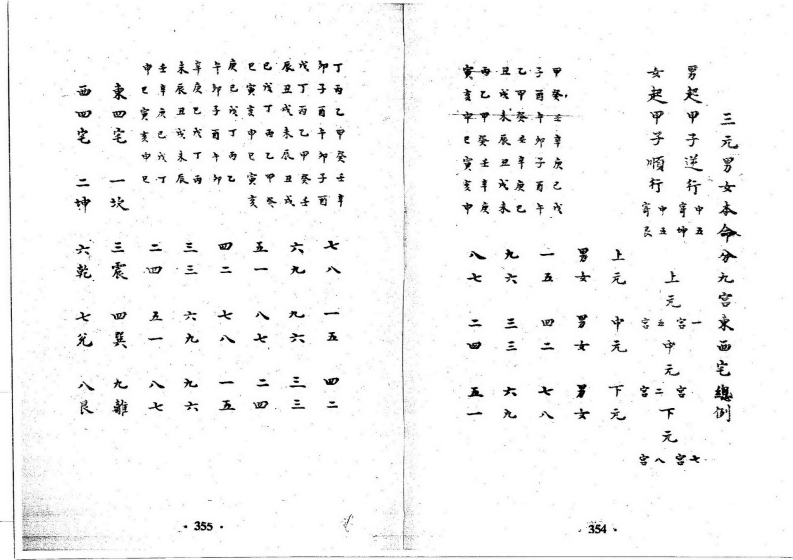 三元男女本命分九宮東西宅總例
男起甲子逆行 中五寄坤
女起甲子順行 中五寄艮
上元 一宮 五宮 中元 宮 二宮 下元 七宮 八宮
上元 中元 下元
男女 男女 男女
甲子 癸酉 壬午 辛卯 庚子 己酉 戊午 一五 四二 七八
乙丑 甲戌 癸未 壬辰 辛丑 庚戌 己未 九六 三三 六九
丙寅 乙亥 甲申 癸巳 壬寅 辛亥 庚申 八七 二四 五一
· 354 ·
丁卯 丙子 乙酉 甲午 癸卯 壬子 辛酉 七八 一五 四二
戊辰 丁丑 丙戌 乙未 甲辰 癸丑 壬戌 六九 九六 三三
己巳 戊寅 丁亥 丙申 乙巳 甲寅 癸亥 五一 八七 二四
庚午 己卯 戊子 丁酉 丙午 乙卯 四二 七八 一五
辛未 庚辰 己丑 戊戌 丁未 丙辰 三三 六九 九六
壬申 辛巳 庚寅 己亥 戊申 丁巳 二四 五一 八七
東四宅 一坎 三震 四巽 九離
西四宅 二坤 六乾 七兌 八艮
· 355 ·